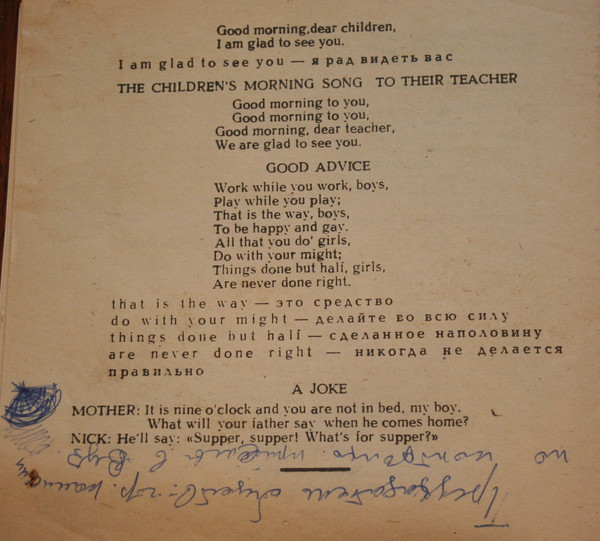 Good morning, dear children,
I am glad to see you.
I am glad to see you — я рад видеть вас
THE CHILDREN'S MORNING SONG TO THEIR TEACHER
Good morning to you,
Good morning to you,
Good morning, dear teacher,
We are glad to see you.
GOOD ADVICE
Work while you work, boys,
Play while you play;
That is the way, boys,
To be happy and gay.
All that you do' girls,
Do with your might;
Things done but half, girls,
Are never done right.
that is the way — это средство
do with your might — делайте во всю силу
things done but half — сделанное наполовину
are never done right — никогда не делается
правильно
A JOKE
MOTHER: It is nine o'clock and you are not in bed, my boy.
What will your father say when he comes home?
NICK: He'll say: «Supper, supper! What's for supper?»